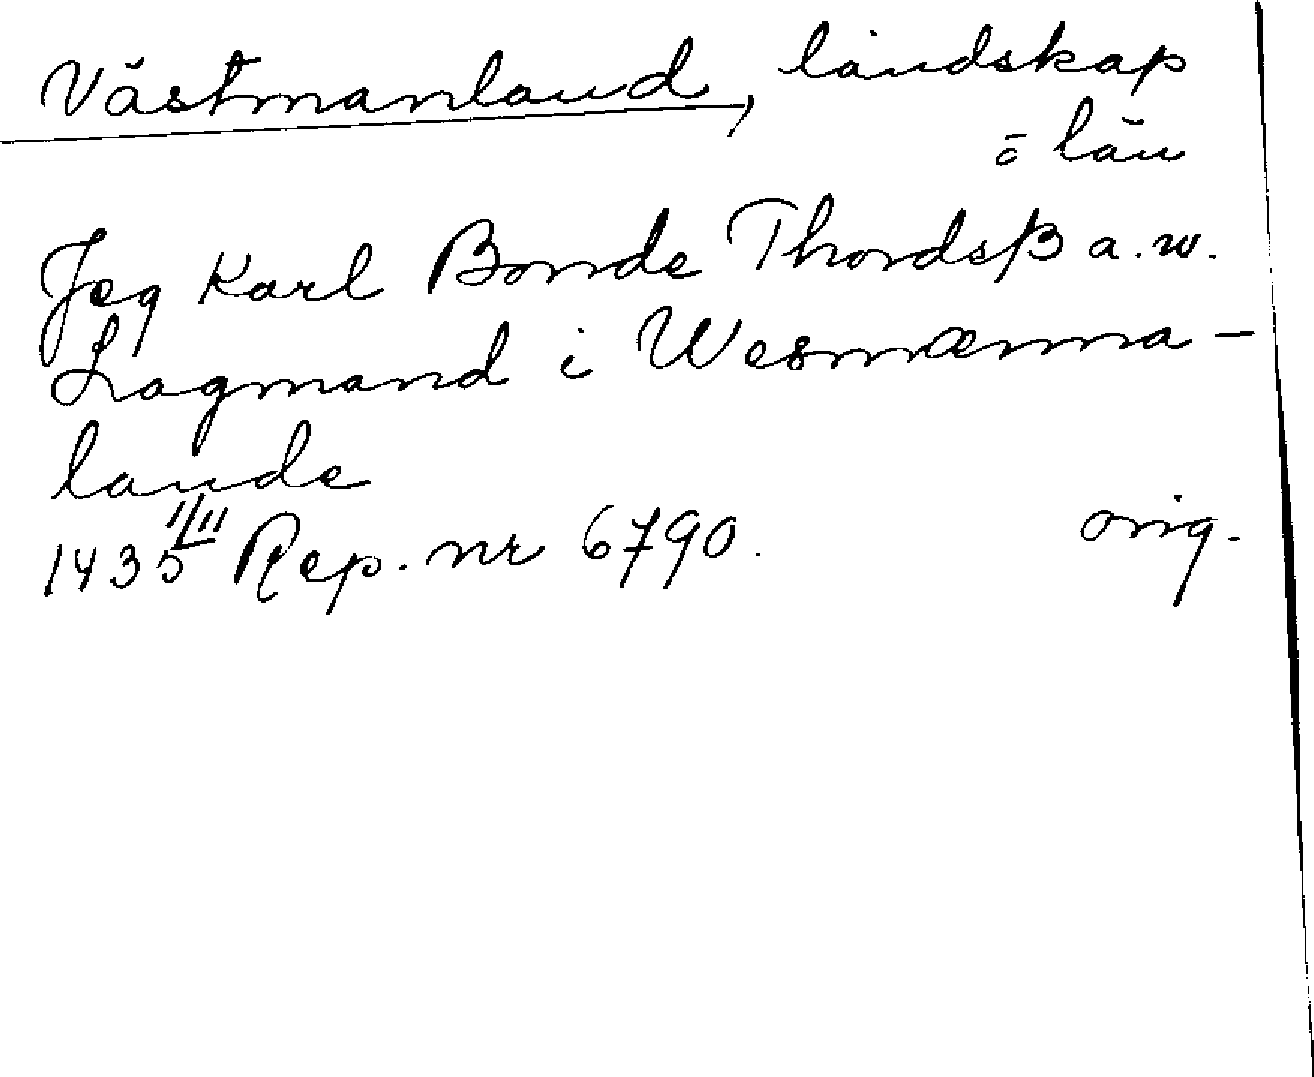 Västmanland, landskap
o län
Jeg Karl Bonde Thordsß a.w.
Lagmand i Wesmænna-
lande
1435 11/11 Rep. nr 6790. orig.